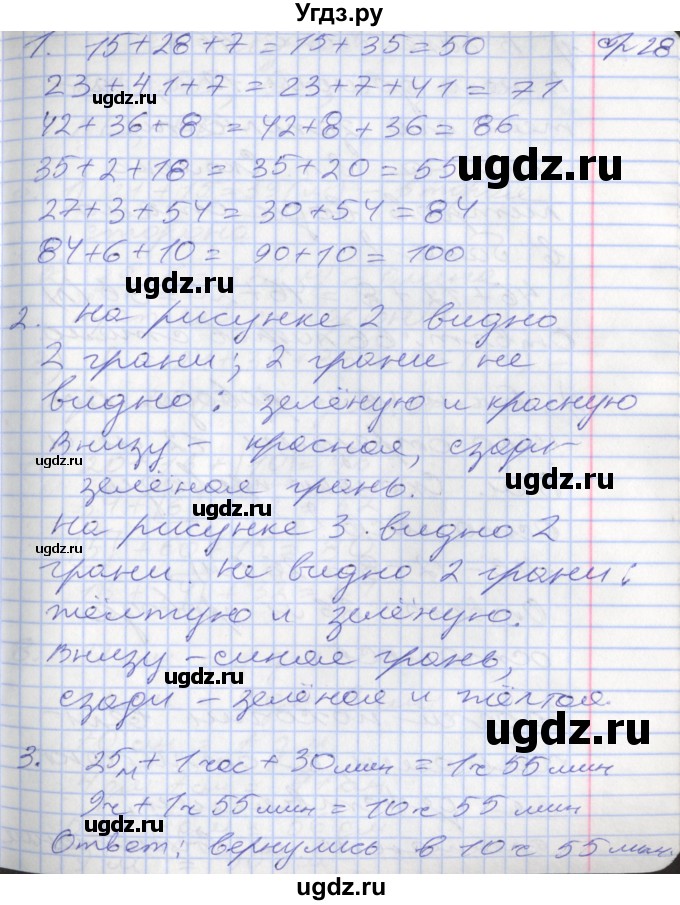 Угдз.ру
1. 15+28+7=15+35=50 стр 28
23+41+7=23+7+41=71
ugdz.ru
42+36+8=42+8+36=86
35+2+18=35+20=55
ugdz.ru
ugdz.ru
27+3+54=30+54=84
84+6+10=90+10=100
ugdz.ru
2. На рисунке 2 видно
2 грани; 2 грани не
ugdz.ru
видно: зелёную и красную
Внизу – красная, сзади –
ugdz.ru
ugdz.ru
зелёная грань.
ugdz.ru
На рисунке 3 видно 2
ugdz.ru
грани. Не видно 2 грани:
жёлтую и зелёную.
Внизу – синяя грань,
ugdz.ru
сзади – зелёная и жёлтая.
ugdz.ru
3. 25м + 1 час + 30 мин = 1ч 55 мин
9ч + 1ч 55 мин = 10ч 55 мин
ugdz.ru
Ответ: вернулись в 10ч 55 мин.
ugdz.ru
ugdz.ru